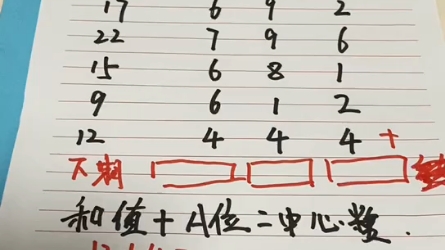 17 6 9 2
22 7 9 6
15 6 8 1
9 6 1 2
12 4 4 4 +
下期
和值+A位=中心数.